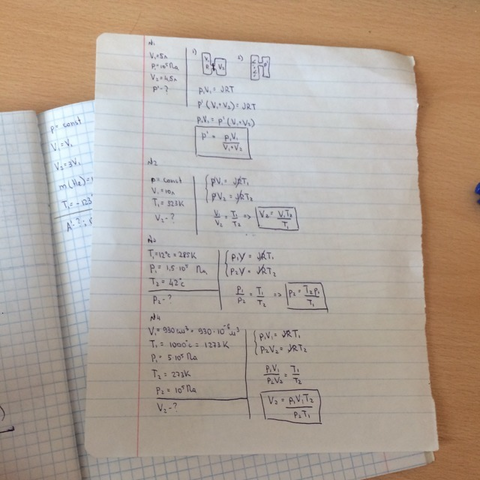 №1
V₁=5л
p₁=10⁵ Па
V₂=4,5л
p'-?
1)
2)
p₁V₁ = νRT
p'(V₁+V₂)=νRT
p₁V₁ = p'(V₁+V₂)
p' = p₁V₁/(V₁+V₂)
№2
p=const
V₁=10л
T₁=323K
V₂-?
pV₁=νRT₁
pV₂=νRT₂
V₁/V₂ = T₁/T₂ => V₂ = V₁T₂/T₁
№3
T₁=12°c=285K
p₁=1,5·10⁵ Па
T₂=42°c
p₂-?
p₁V=νRT₁
p₂V=νRT₂
p₁/p₂ = T₁/T₂ => p₂ = T₂p₁/T₁
№4
T₁=1000°c=1273K
p₁=5·10⁵Па
T₂=273K
p₂=10⁵Па
V₂-?
p₁V₁=νRT₁
p₂V₂=νRT₂
p₁V₁/p₂V₂ = T₁/T₂
V₂ = p₁V₁T₂/p₂T₁
p=const
V₁=V₁
V₂=3V₁